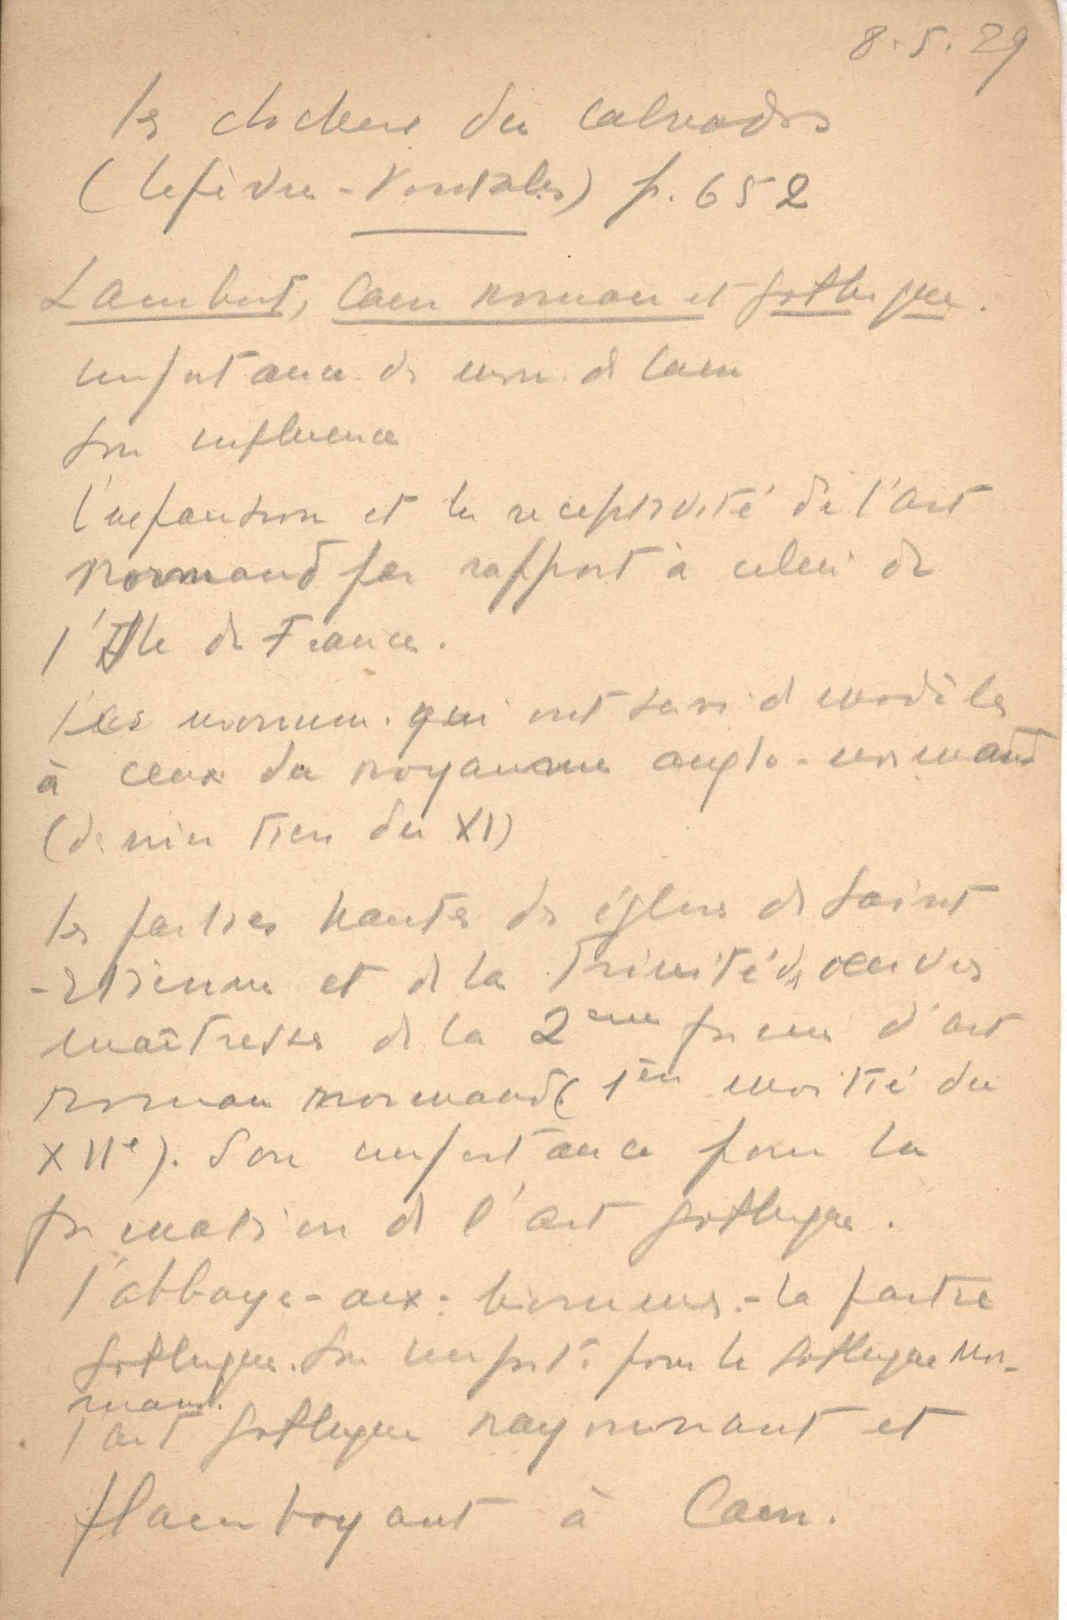 8.5.29
les clochers du Calvados
(Lefèvre-Pontalis) p. 652
Lambert, Caen roman et gothique.
importance de mon. de Caen
Son influence
l'expansion et la réceptivité de l'art
normand par rapport à celui de
l'Ile de France.
Les monum. qui ont servi d modèles
à ceux du royaume anglo-normand
(dernier tiers du XI)
les parties hautes des églises de Saint
-Etienne et de la Trinité, oeuvres
maîtresses de la 2ème d'art
roman normand (1ère moitié du
XIIe). Son importance pour la
formation de l'art gothique.
l'abbaye-aux-hommes.-la partie
gothique. Son import. pour le gothique nor-
mand.
l'art gothique rayonnant et
flamboyant à Caen.